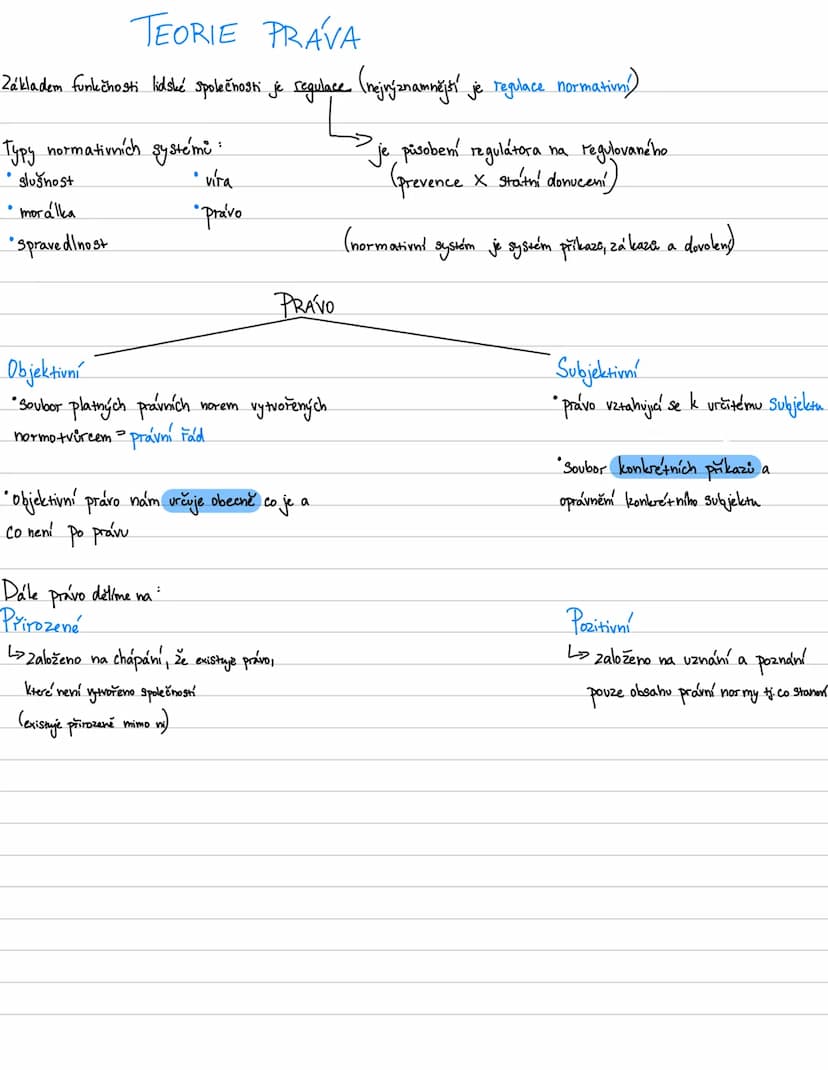 TEORIE PRÁVA
Základem funkčnosti lidské společnosti je regulace (nejvýznamnější je regulace normativní)
Typy normativních systémů:
• slušnost
• morálka
• spravedlnost
• víra
• právo
je působení regulátora na regulovaného
(prevence X státní donucení)
(normativní systém je systém příkazů, zákazů a dovolení)
PRÁVO
Objektivní
• Soubor platných právních norem vytvořených
normotvůrcem = právní řád
• Objektivní právo nám určuje obecně co je a
co není po právu
Subjektivní
• právo vztahující se k určitému subjektu
• Soubor konkrétních příkazů a
oprávnění konkrétního subjektu
Dále právo dělíme na:
Přirozené
↳ založeno na chápání, že existuje právo,
které není vytvořeno společností
(existuje přirozeně mimo ni)
Pozitivní
↳ založeno na uznání a poznání
pouze obsahu právní normy tj. co stanoví